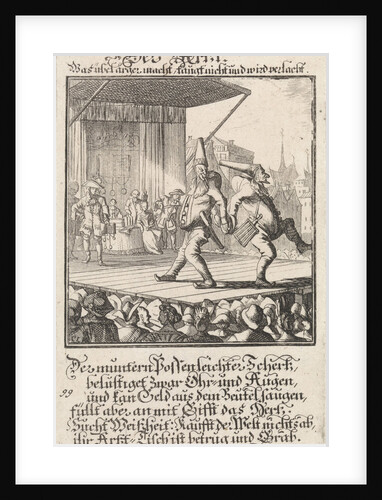 Was übel ärger macht, taugt nicht und wird verlacht.
Der muntern Possen leichter Schertz,
belustiget zwar Ohr- und Augen,
99
und kan Geld aus dem Beutel saugen,
füllt aber an mit Gifft das Hertz.
Sucht Weißheit: Kaufft der Welt nichts ab,
ihr Artzt-Tisch ist betrug und Grab.